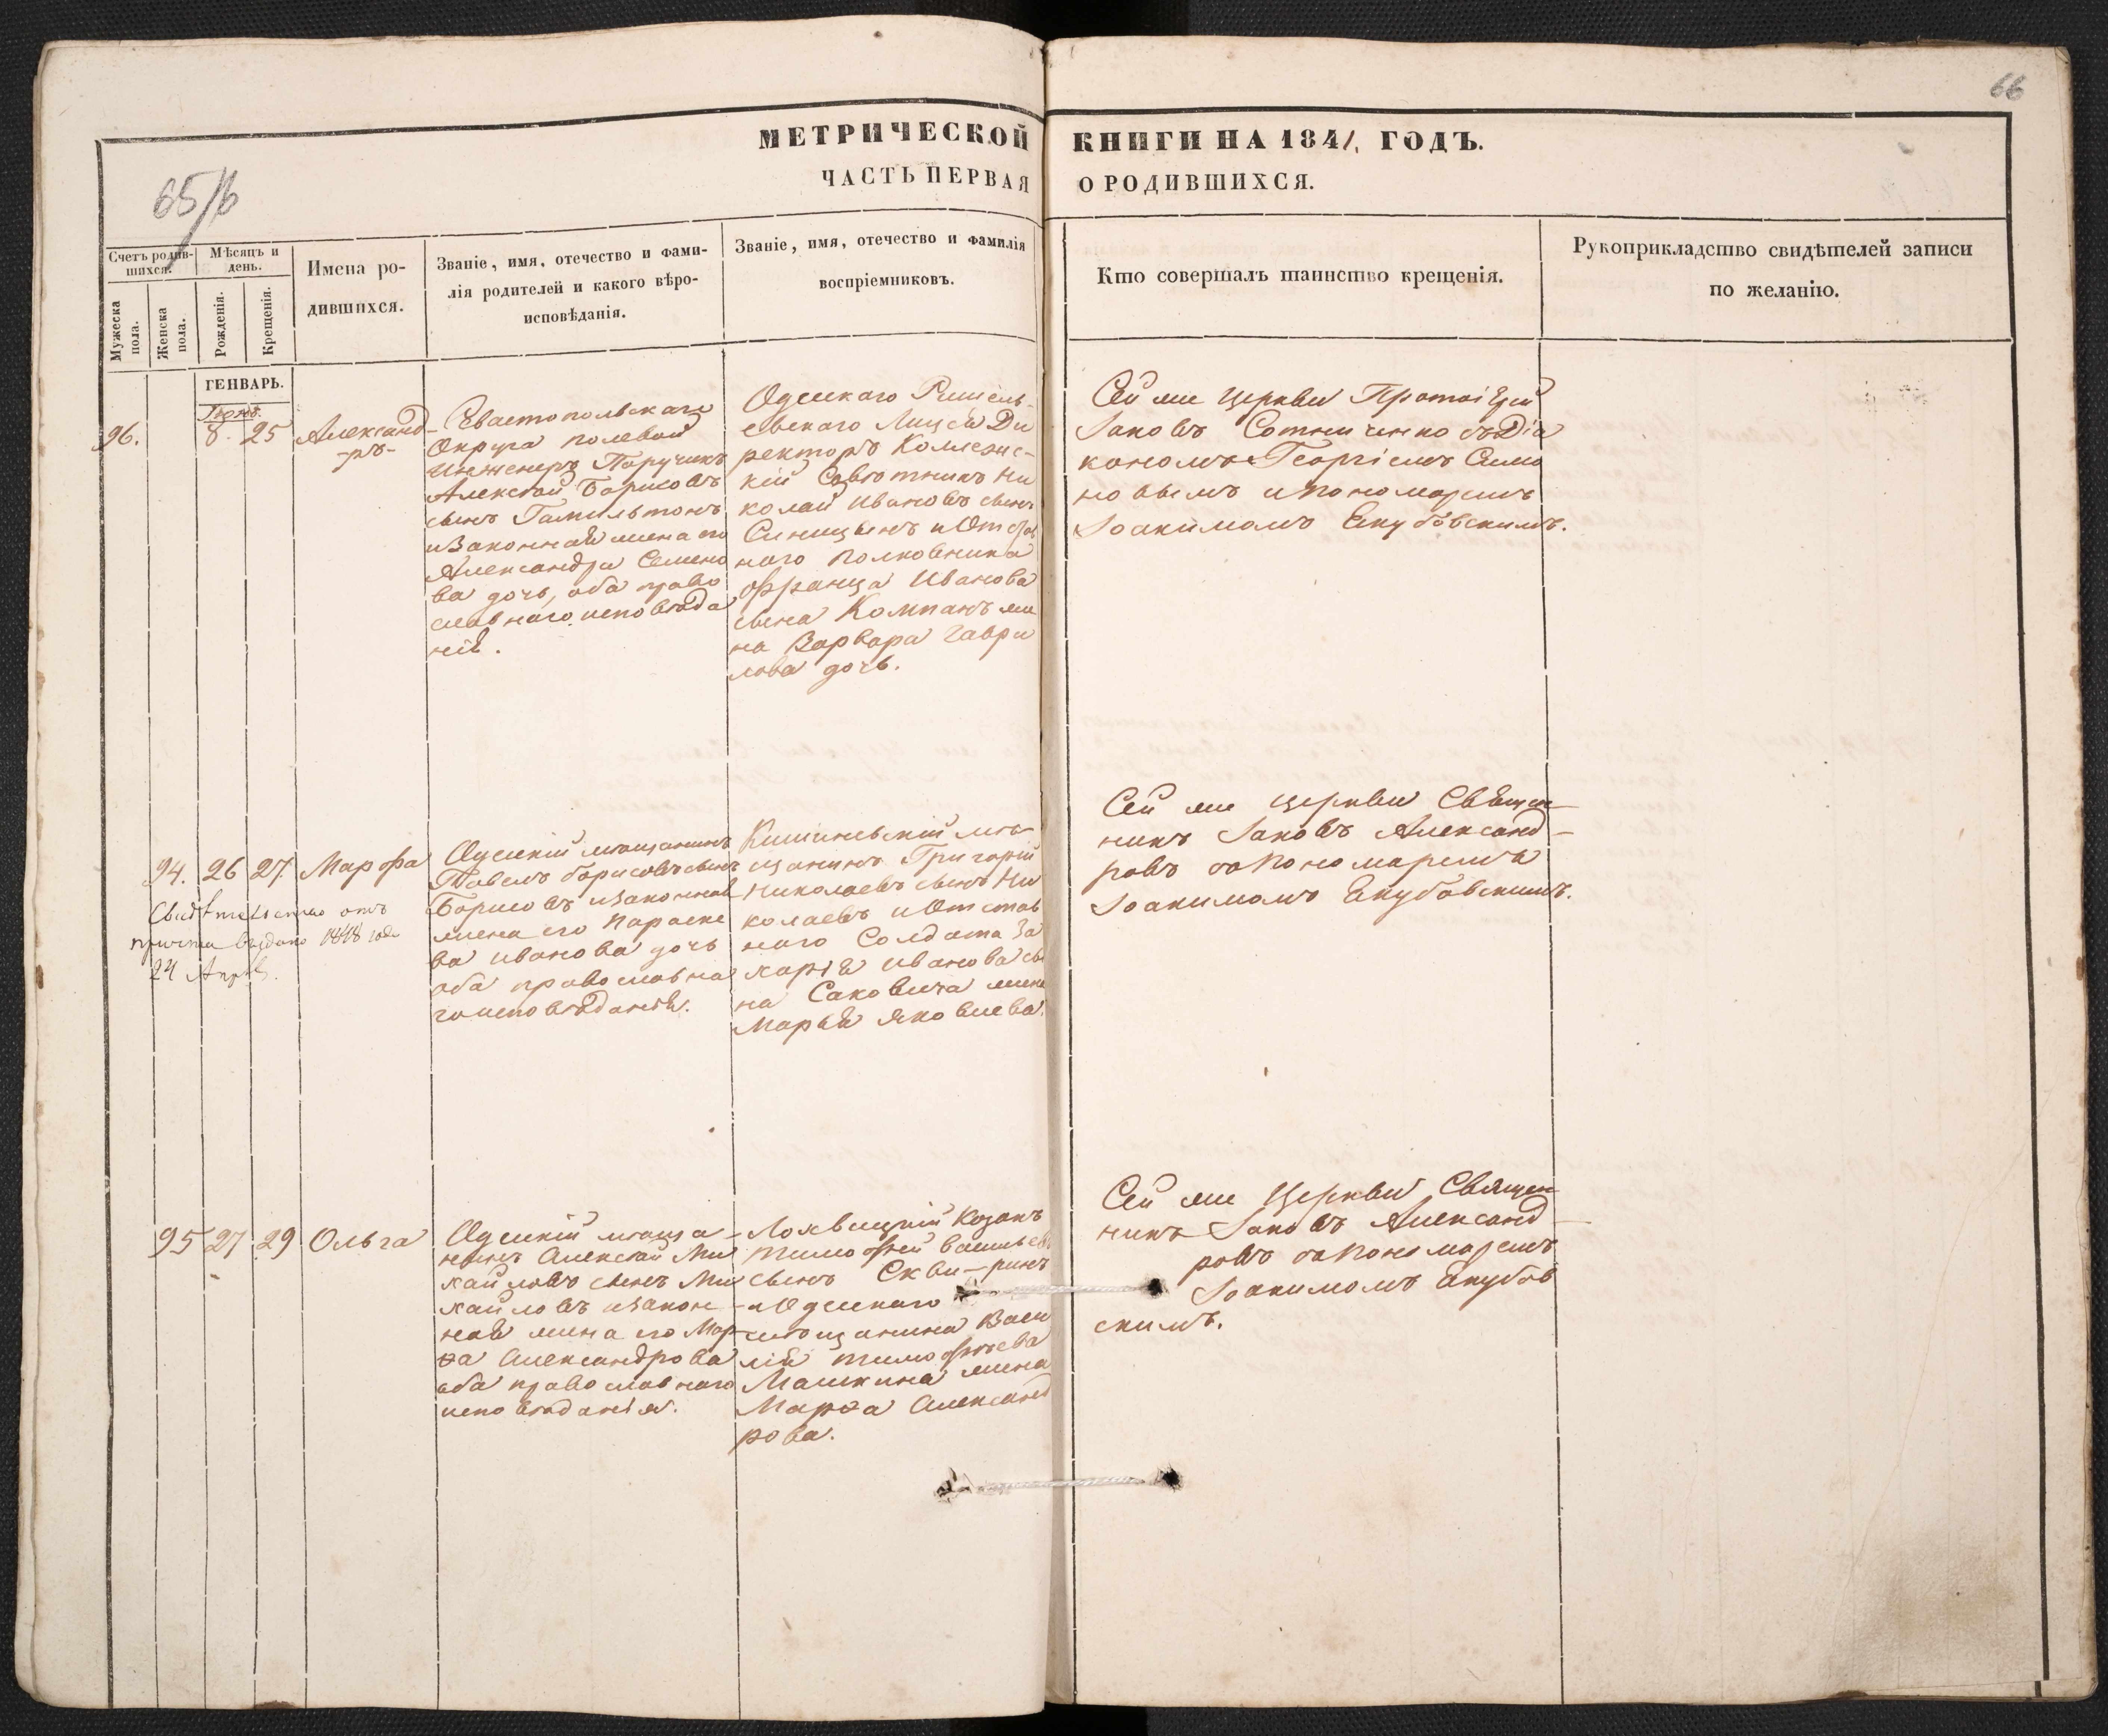 66
65/6
МЕТРИЧЕСКОЙ КНИГИ НА 1841. ГОДЪ.
ЧАСТЬ ПЕРВАЯ О РОДИВШИХСЯ.
Счетъ родив-
шихся.
Мужеска пола.
Женска пола.
Мѣсяцъ и
день.
Рожденія.
Крещенія.
Имена ро-
дившихся.
Званіе, имя, отечество и фами-
лія родителей и какого вѣро-
исповѣданія.
Званіе, имя, отечество и фамилія
воспріемниковъ.
Кто совершалъ таинство крещенія.
Рукоприкладство свидѣтелей записи
по желанію.
ГЕНВАРЬ.
96. 8. 25 Александ-
-ръ-
Севастопольскаго
Округа полевой
Инженеръ Поручикъ
Алексѣй Борисовъ
сынъ Гамильтонъ
и Законная жена его
Александра Семено
ва дочь, оба право
славнаго исповѣда
нія.
Одескаго Ришель-
евскаго Лицея Ди
ректоръ Коллежс-
кій Совѣтникъ Ни
колай Ивановъ сынъ
Синицынъ и Отстав
наго Полковника
Франца Иванова
сына Компанъ же
на Варвара Гаври
лова дочь.
Сей же Церкви Протоіерей
Іаковъ Сотниченко съ Діа
кономъ Георгіемъ Симо
новымъ и пономаремъ
Іоакимомъ Екубовскимъ.
94. 26 27 Марфа
Свидѣтельство отъ
причта выдано 1848 года
24 Апрѣ.
Одескій мѣщанинъ
Павелъ Борисовъ сынъ
Борисовъ и законная
жена его Параске
ва Иванова дочь
оба православна
го исповѣданія.
Кишиневскій мѣ-
щанинъ Григорій
Николаевъ сынъ Ни
колаевъ и Отстав
наго Солдата За
харія Иванова сы
на Саковича жена
Марья Яковлева.
Сей же церкви Священ
никъ Іаковъ Александ-
ровъ съ Пономаремъ
Іоакимомъ Екубовскимъ.
95 27 29 Ольга
Одескій мѣща-
нинъ Алексѣй Ми
хайловъ сынъ Ми
хайловъ и закон-
ная жена его Мар
ѳа Александрова
оба православнаго
исповѣданія.
Лохвицкій Козакъ
Тимофей Васильевъ
сынъ Скви-ринъ
и Одескаго
мѣщанина Васи
лія Тимофѣева
Машкина жена
Марѳа Александ
рова.
Сей же Церкви Священ
никъ Іаковъ Александ-
ровъ съ Пономаремъ
Іоакимомъ Екубов
скимъ.